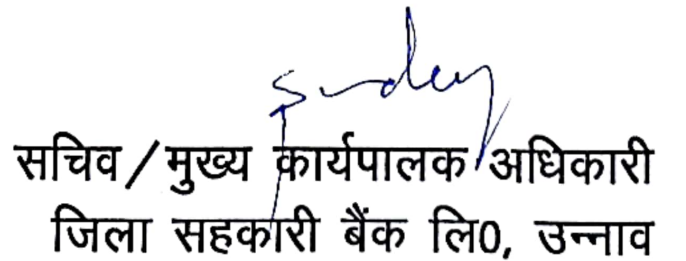 सचिव/मुख्य कार्यपालक अधिकारी
जिला सहकारी बैंक लि0, उन्नाव